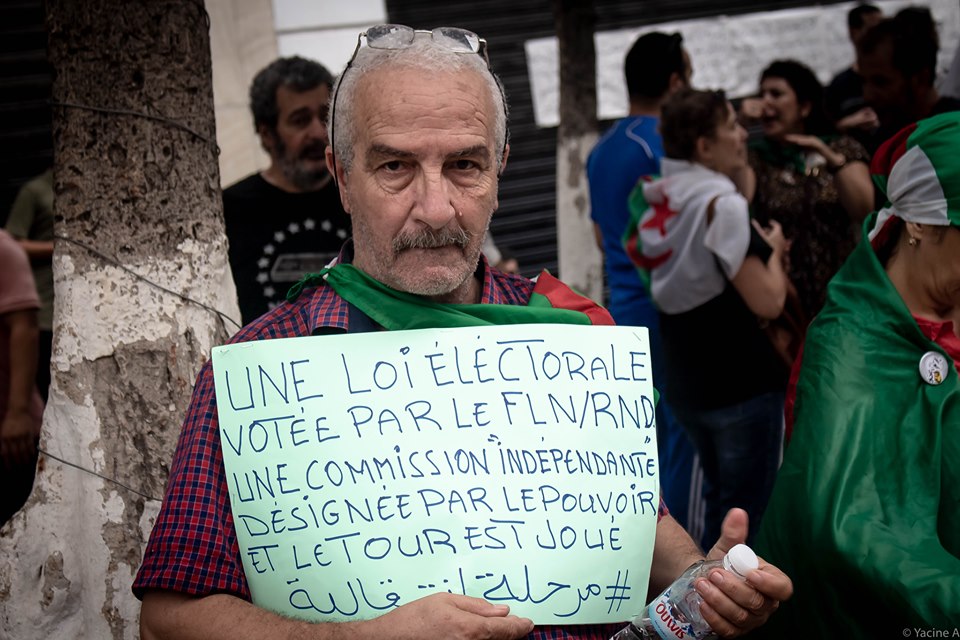 UNE LOI ÉLÉCTORALE
VOTÉE PAR LE FLN/RND
UNE COMMISSION "INDÉPENDANTE"
DÉSIGNÉE PAR LE POUVOIR
ET LE TOUR EST JOUÉ
#مرحلة انتقالية
© Yacine A